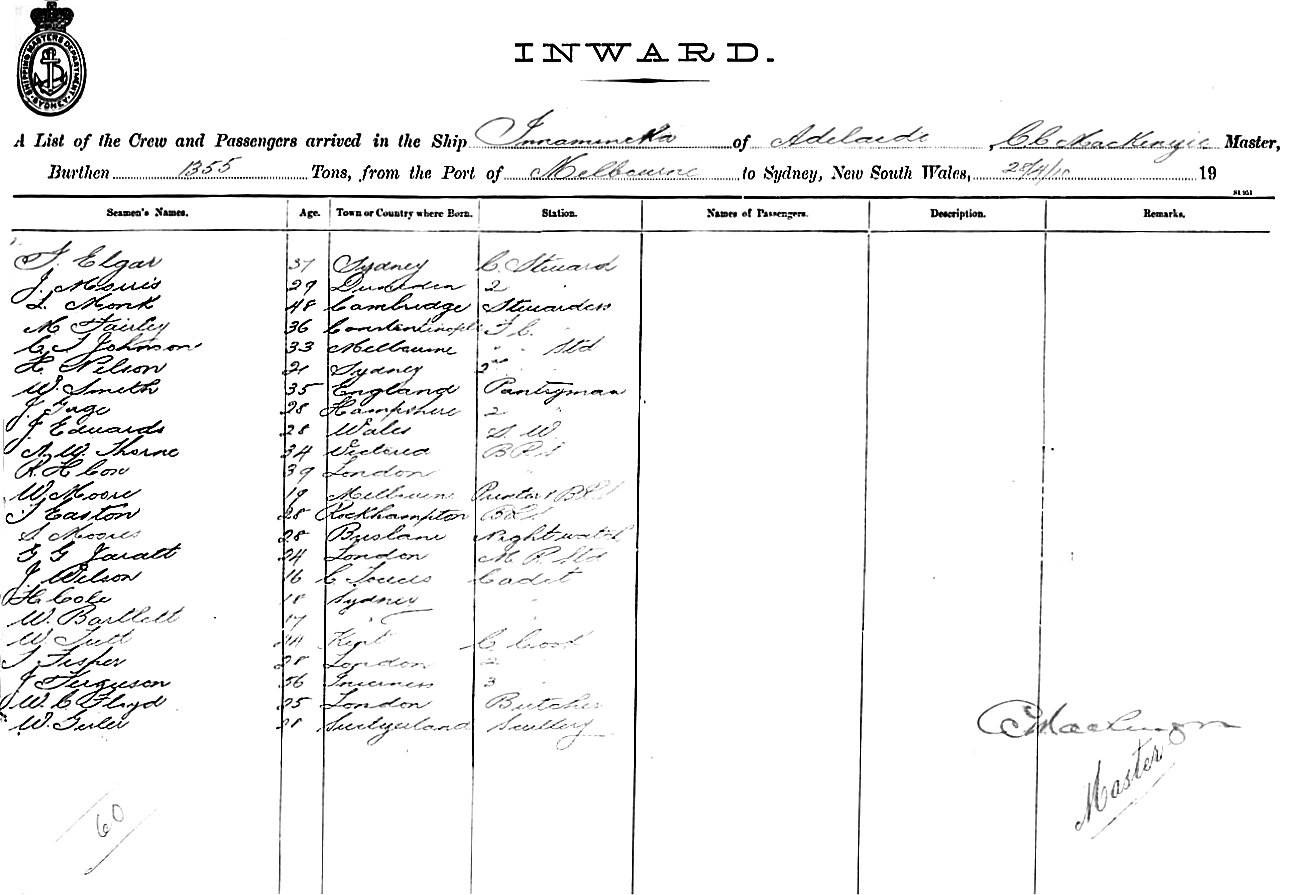 SHIPPING MASTERS DEPARTMENT SYDNEY
INWARD.
A List of the Crew and Passengers arrived in the Ship Innamincka of Adelaide, C C MacKenzie Master,
Burthen 1355 Tons, from the Port of Melbourne to Sydney, New South Wales, 28/4/10 19
Seamen's Names. Age. Town or Country where Born. Station. Names of Passengers. Description. Remarks.
Elgar 37 Sydney C. Steward
J. Morris 29 Dunedin 2 "
L. Monk 48 Cambridge Stewardess
M Fairley 36 Constantinople F C. "
C T Johnson 33 Melbourne " " Std
H. Nelson 21 Sydney 2nd "
W. Smith 35 England Pantryman
J. Gage 28 Hampshire 2 "
J Edwards 28 Wales S. W.
A. W. Thorne 34 Victoria B R S
R. H Cox 39 London "
W. Moore 19 Melbourne Printer & B R S
T Easton 28 Rockhampton B R S
S Moores 28 Brisbane Nightwatch
G G Jaratt 24 London M. R. Std
J. Wilson 16 Cadet
H. Cole 18 Sydney "
W. Bartlett 17 " "
W. Tutt 44 Kent C. Cook
T Fisher 28 London 2 "
J Ferguson 56 Inverness 3 "
W. C Floyd 25 London Butcher
W. 28 Switzerland Scullery
C MacKenzie
Master
60